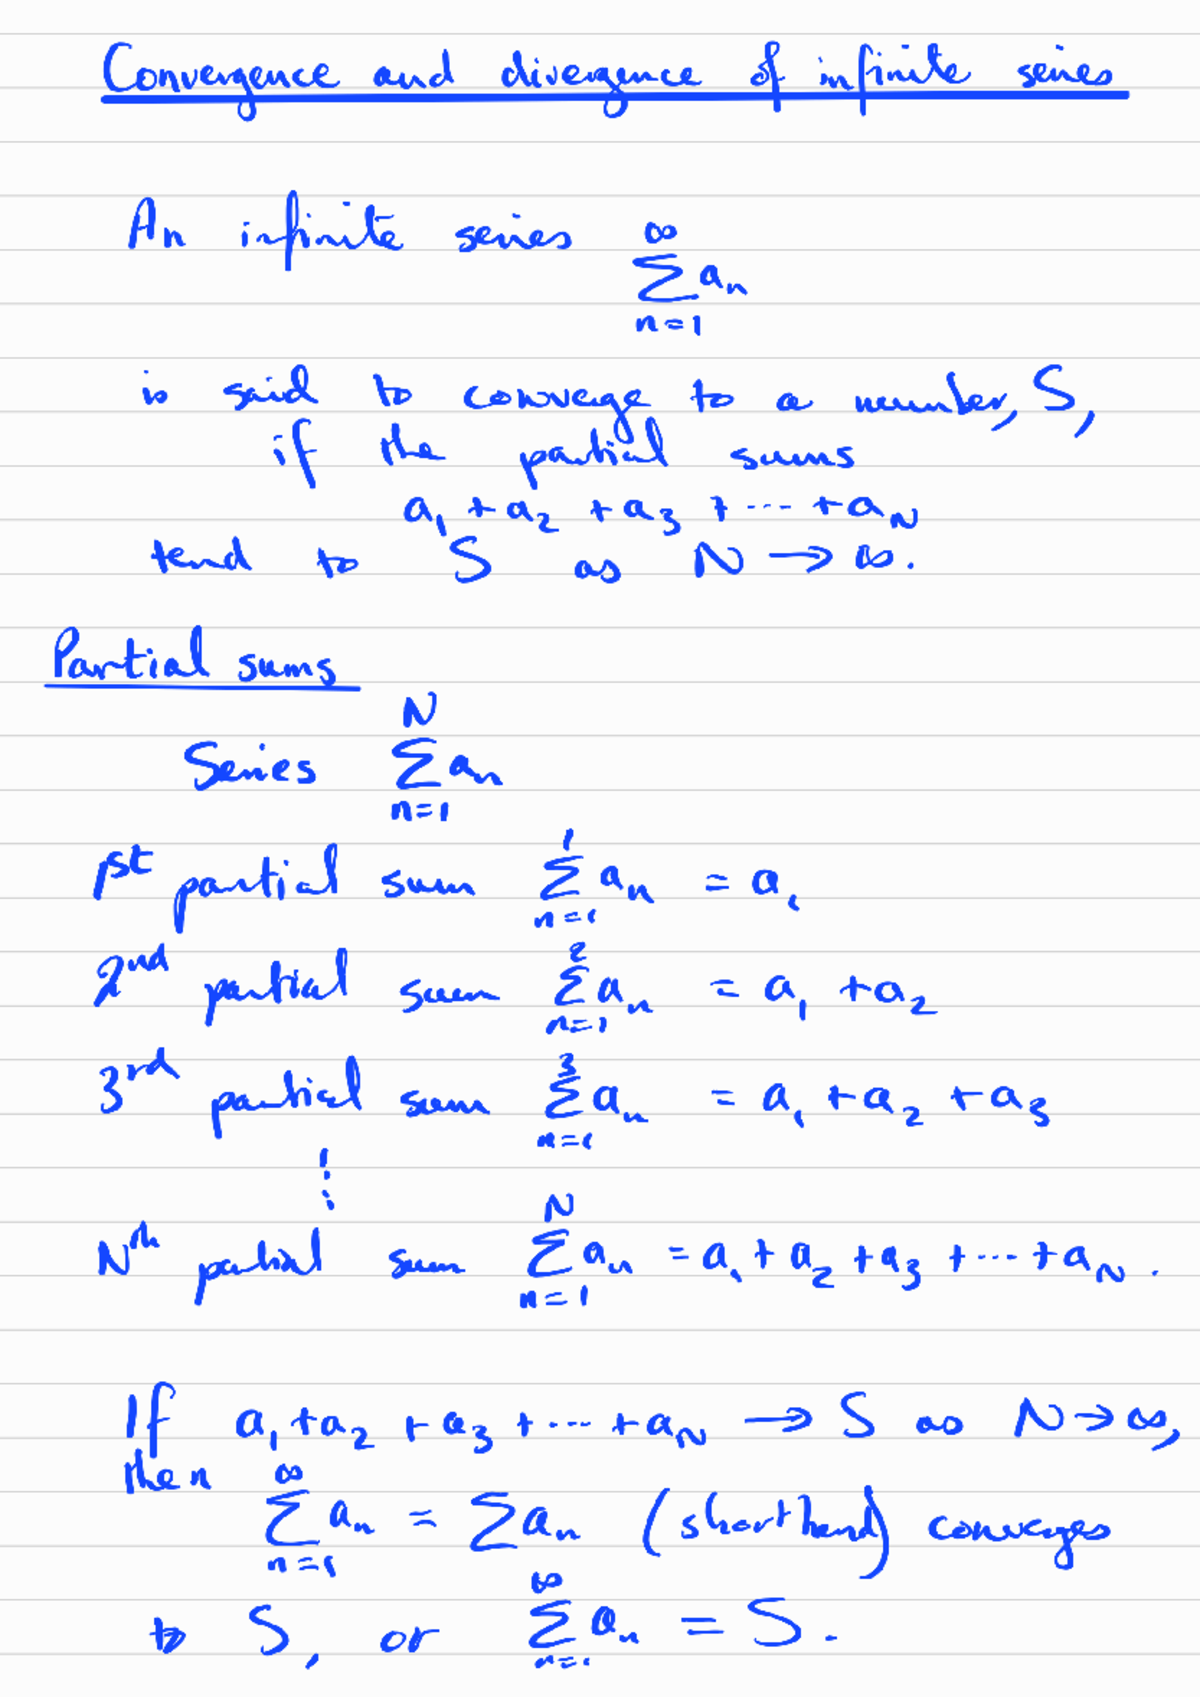 Convergence and divergence of infinite series
An infinite series $\sum_{n=1}^{\infty} a_n$
is said to converge to a number, S,
if the partial sums
$a_1 + a_2 + a_3 + \cdots + a_N$
tend to S as $N \to \infty$.
Partial sums
Series $\sum_{n=1}^{N} a_n$
1st partial sum $\sum_{n=1}^{1} a_n = a_1$
2nd partial sum $\sum_{n=1}^{2} a_n = a_1 + a_2$
3rd partial sum $\sum_{n=1}^{3} a_n = a_1 + a_2 + a_3$
⋮
Nth partial sum $\sum_{n=1}^{N} a_n = a_1 + a_2 + a_3 + \cdots + a_N$.
If $a_1 + a_2 + a_3 + \cdots + a_N \to S$ as $N \to \infty$,
then
$\sum_{n=1}^{\infty} a_n = \sum a_n$ (shorthand) converges
to S, or $\sum_{n=1}^{\infty} a_n = S$.